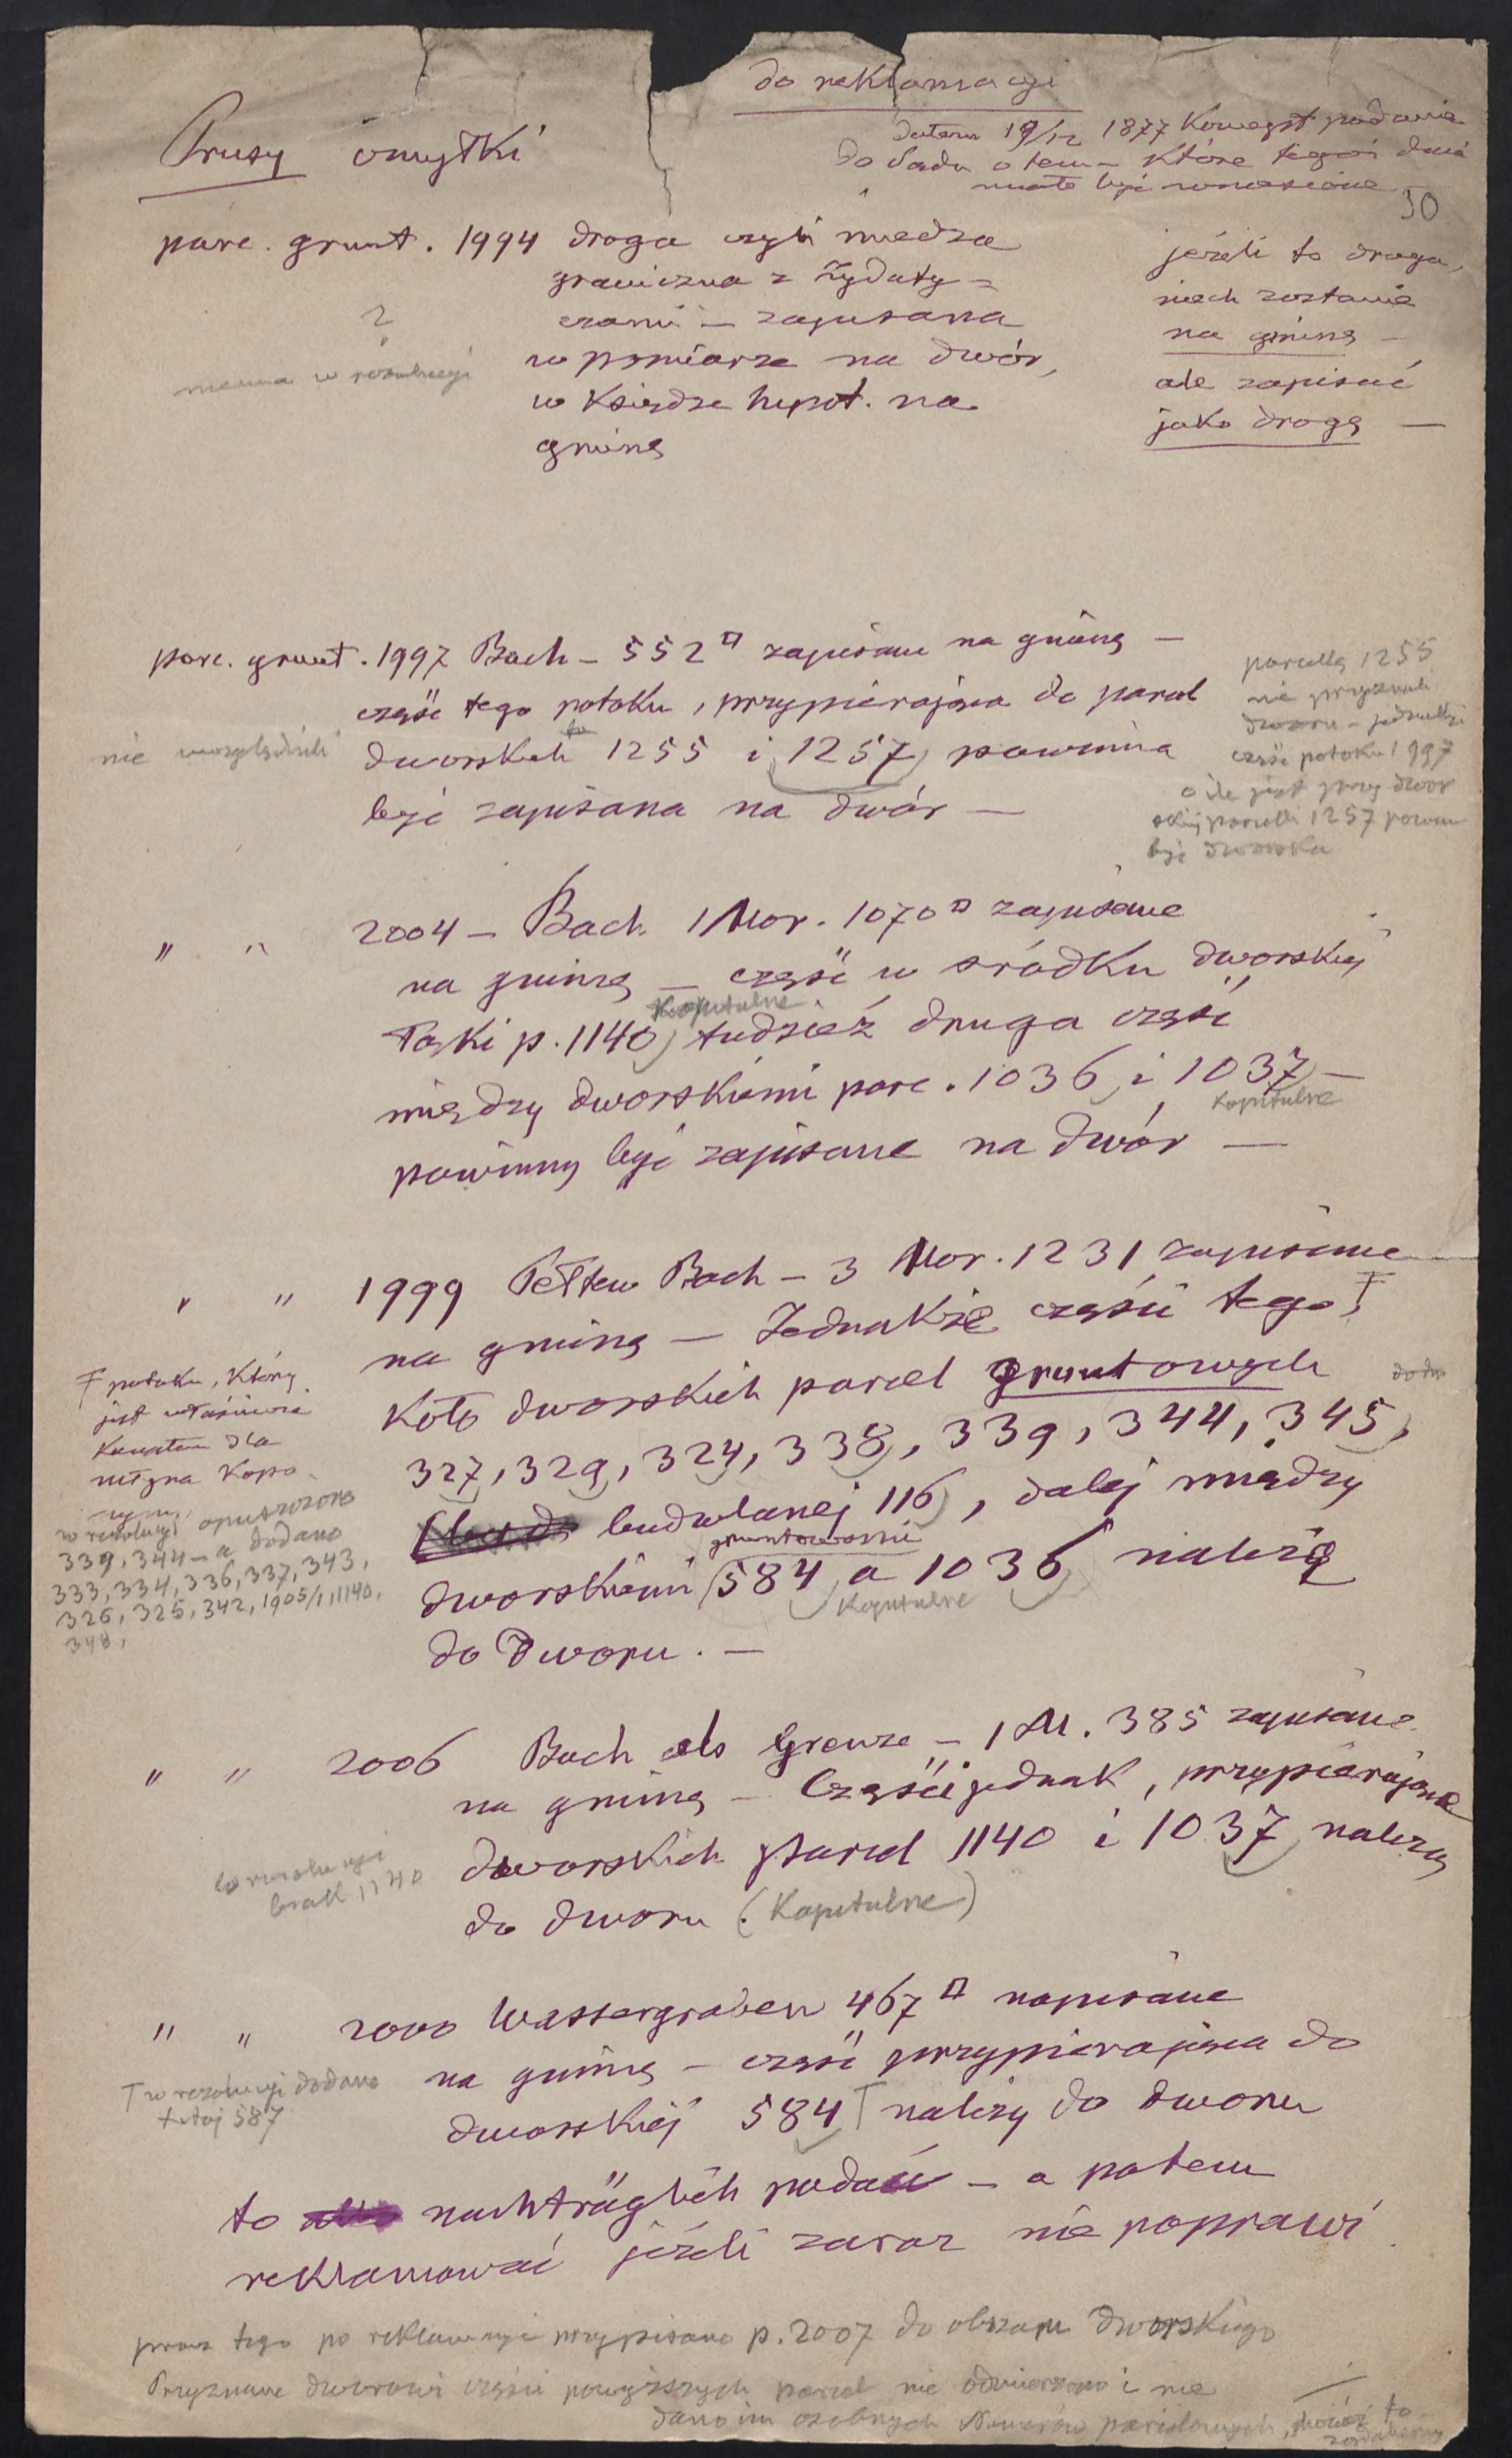 do reklamacyi
datem 19/12 1877 Koncept podania
do Sądu o tem – które tegoż dnia
miało być wniesione
30
Prusy omyłki
parc. grunt. 1994 droga czyli miedza
graniczna z Żydaty-
czami – zapisana
w pomiarze na dwór,
w Księdze hypot. na
gminę
?
niema w rezolucyi
jeżeli to droga,
niech zostanie
na gminę –
ale zapisać
jako drogę —
parc. grunt. 1997 Bach – 552□ zapisane na gminę –
część tego potoku, przypierająca do parcel
dworskich 1255 i 1257 powinna
być zapisana na dwór —
nie uwzględnili
parcellę 1255
nie przyznali
dworu – jednakże
część potoku 1997
o ile jest przy dwor
skiej parcelli 1257 powin
być dworska
" " 2004 – Bach 1 Mor. 1070□ zapisane
na gminę – część w środku dworskiej
Kapitulne
łąki p. 1140, tudzież druga część
między dworskiemi parc. 1036 i 1037 –
Kapitulne
powinny być zapisane na dwór —
" " 1999 Pełtew Bach – 3 Mor. 1231 zapisane
na gminę – Jednakże części tego Ŧ
koło dworskich parcel gruntowych
327, 329, 324, 338, 339, 344, 345,
budwlanej 116, dalej między
gruntowemi
dworskiemi 584 a 1036 należą
Kapitulne
do Dworu. —
Ŧ potoku, który
jest właściwie
Kanałem dla
młyna
w rezolucyi opuszczono
339, 344 – a dodano
333, 334, 336, 337, 343,
326, 325, 342, 1905/1, 1140,
348,
" " 2006 Bach als Grenze – 1 M. 385 zapisane
na gminę – Części jednak, przypierające
dworskich parcel 1140 i 1037 należą
do dworu (Kapitulne)
w rezolucyi
brak 1140
" " 2000 Wassergraben 467□ napisane
na gminę – część przypierająca do
dworskiej 584 T należy do dworu
T w rezolucyi dodano
tutaj 587
to nachträglich podać – a potem
reklamować jeżeli zaraz nie poprawi
prócz tego po reklamacyi przypisano p. 2007 do obszaru dworskiego
Przyznane dworowi części powyższych parcel nie odmierzono i nie
dano im osobnych Numerów parcelowych, chociaż to